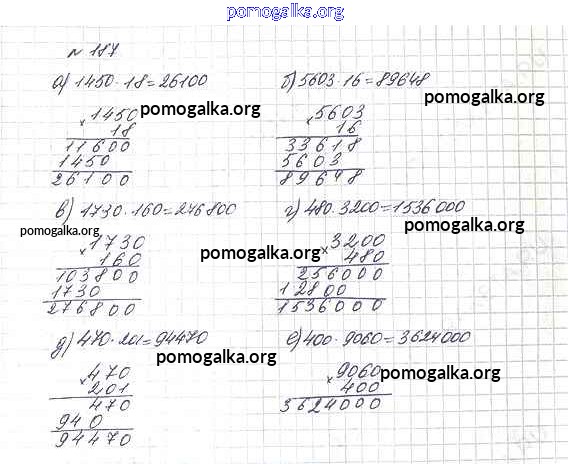 pomogalka.org
№ 187
а) 1450·18=26100
б) 5603·16=89648
pomogalka.org
× 1450
18
11600
1450
26100
pomogalka.org
× 5603
16
33618
5603
89648
в) 1730·160=276800
г) 480·3200=1536000
pomogalka.org
× 1730
160
103800
1730
276800
pomogalka.org
× 3200
480
256000
12800
1536000
pomogalka.org
д) 470·201=94470
е) 400·9060=3624000
pomogalka.org
× 470
201
470
940
94470
× 9060
400
3624000
pomogalka.org